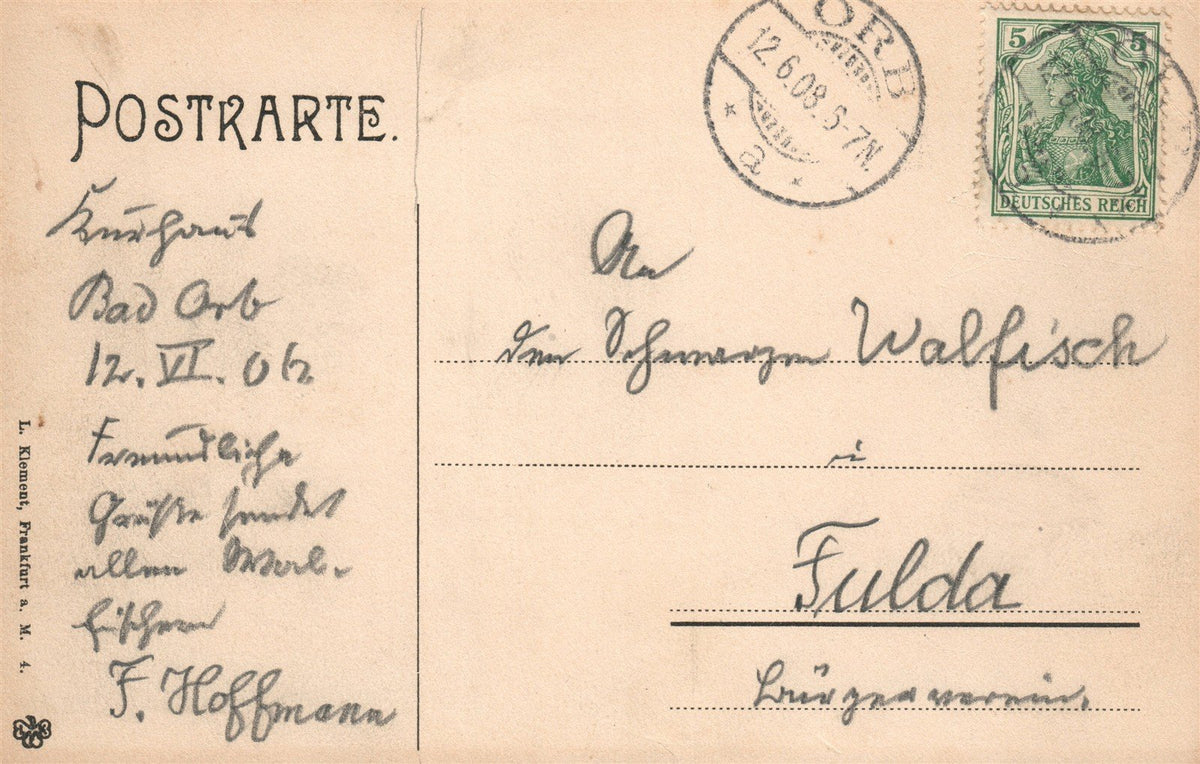 POSTKARTE.
Kurhaus
Bad Orb
12. VI. 06
Freundliche
Grüße sendet
allen Wal-
fischen
F. Hoffmann
L. Klement, Frankfurt a. M. 4.
ORB
12.6.08.6-7N.
a
5 5
DEUTSCHES REICH
An
den Schwarzen Walfisch
i
Fulda
Bürgerverein.